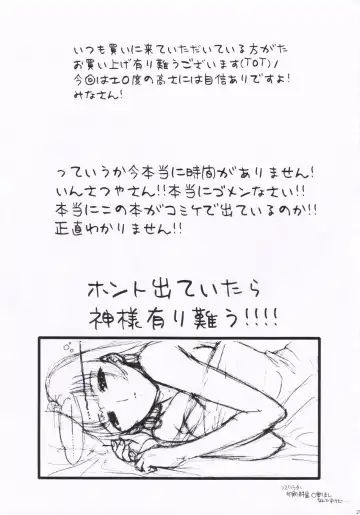 いつも買いに来ていただいている方がた
お買い上げ有り難うございます(TOT)ノ
今回はエロ度の高さには自信ありですよ!
みなさん!
っていうか今本当に時間がありません!
いんさつやさん!!本当にゴメンなさい!!
本当にこの本がコミケで出ているのか!!
正直わかりません!!
ホント出ていたら
神様有り難う!!!!